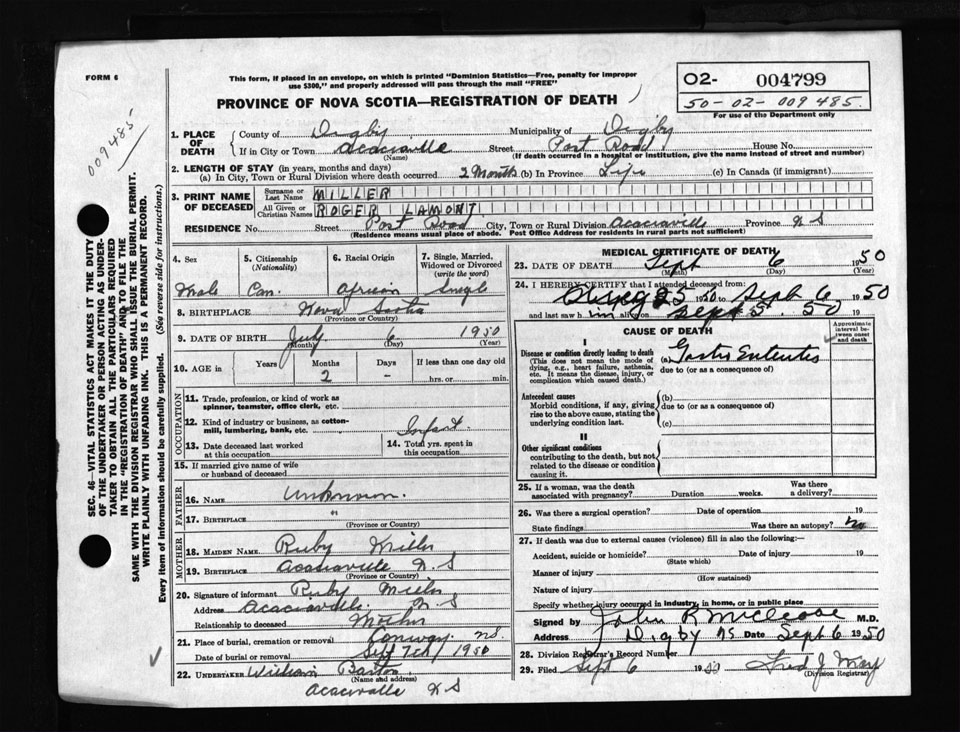 FORM 6
This form, if placed in an envelope, on which is printed "Dominion Statistics—Free, penalty for improper
use $300," and properly addressed will pass through the mail "FREE"
PROVINCE OF NOVA SCOTIA—REGISTRATION OF DEATH
02- 004799
50-02-009485.
For use of the Department only
009485
1. PLACE OF DEATH County of Digby Municipality of Digby
If in City or Town Acaciaville Street Post Road House No.
(Name) (If death occurred in a hospital or institution, give the name instead of street and number)
2. LENGTH OF STAY (in years, months and days)
(a) In City, Town or Rural Division where death occurred 2 Months (b) In Province Life (c) In Canada (if immigrant)
3. PRINT NAME OF DECEASED Surname or Last Name MILLER
All Given or Christian Names ROGER LAMONT
RESIDENCE No. Street Post Road City, Town or Rural Division Acaciaville Province N S
(Residence means usual place of abode. Post Office Address for residents in rural parts not sufficient)
4. Sex 5. Citizenship (Nationality) 6. Racial Origin 7. Single, Married, Widowed or Divorced (write the word)
Male Can. African Single
8. BIRTHPLACE Nova Scotia
(Province or Country)
9. DATE OF BIRTH July 6 1950
(Month) (Day) (Year)
10. AGE in Years Months Days If less than one day old
2 - hrs. or min.
OCCUPATION
11. Trade, profession, or kind of work as
spinner, teamster, office clerk, etc.
12. Kind of industry or business, as cotton-
mill, lumbering, bank, etc. Infant.
13. Date deceased last worked at this occupation 14. Total yrs. spent in this occupation
15. If married give name of wife
or husband of deceased
FATHER
16. NAME Unknown.
17. BIRTHPLACE "
(Province or Country)
MOTHER
18. MAIDEN NAME Ruby Miller
19. BIRTHPLACE Acaciaville N.S
(Province or Country)
20. Signature of informant Ruby Miller
Address Acaciaville. N.S
Relationship to deceased Mother
21. Place of burial, cremation or removal Conway N.S.
Date of burial or removal Sept 7th 1950
22. UNDERTAKER William
(Name and address)
N S
MEDICAL CERTIFICATE OF DEATH
23. DATE OF DEATH Sept 6 1950
(Month) (Day) (Year)
24. I HEREBY CERTIFY that I attended deceased from:
Aug 25 1950 to Sept 6 1950
and last saw him alive on Sept 5 50 19
CAUSE OF DEATH
Approximate interval between onset and death
I
Disease or condition directly leading to death (a) Gastro Enteritis
(This does not mean the mode of dying, e.g., heart failure, asthenia, etc. It means the disease, injury, or complication which caused death.)
due to (or as a consequence of)
Antecedent causes (b)
Morbid conditions, if any, giving rise to the above cause, stating the underlying condition last.
due to (or as a consequence of)
(c)
II
Other significant conditions
contributing to the death, but not
related to the disease or condition
causing it.
25. If a woman, was the death associated with pregnancy? Duration weeks. Was there a delivery?
26. Was there a surgical operation? Date of operation 19
State findings Was there an autopsy? no
27. If death was due to external causes (violence) fill in also the following:—
Accident, suicide or homicide? Date of injury 19
(State which)
Manner of injury
(How sustained)
Nature of injury
Specify whether injury occurred in industry, in home, or in public place
Signed by John R M.D.
Address Digby NS Date Sept 6 1950
28. Division Registrar's Record Number
29. Filed Sept 6 1950 Fred J May
(Division Registrar)
SEC. 46—VITAL STATISTICS ACT MAKES IT THE DUTY
OF THE UNDERTAKER OR PERSON ACTING AS UNDER-
TAKER TO OBTAIN ALL THE PARTICULARS REQUIRED
IN THE "REGISTRATION OF DEATH" AND TO FILE THE
SAME WITH THE DIVISION REGISTRAR WHO SHALL ISSUE THE BURIAL PERMIT.
WRITE PLAINLY WITH UNFADING INK. THIS IS A PERMANENT RECORD.
Every item of information should be carefully supplied. (See reverse side for instructions.)